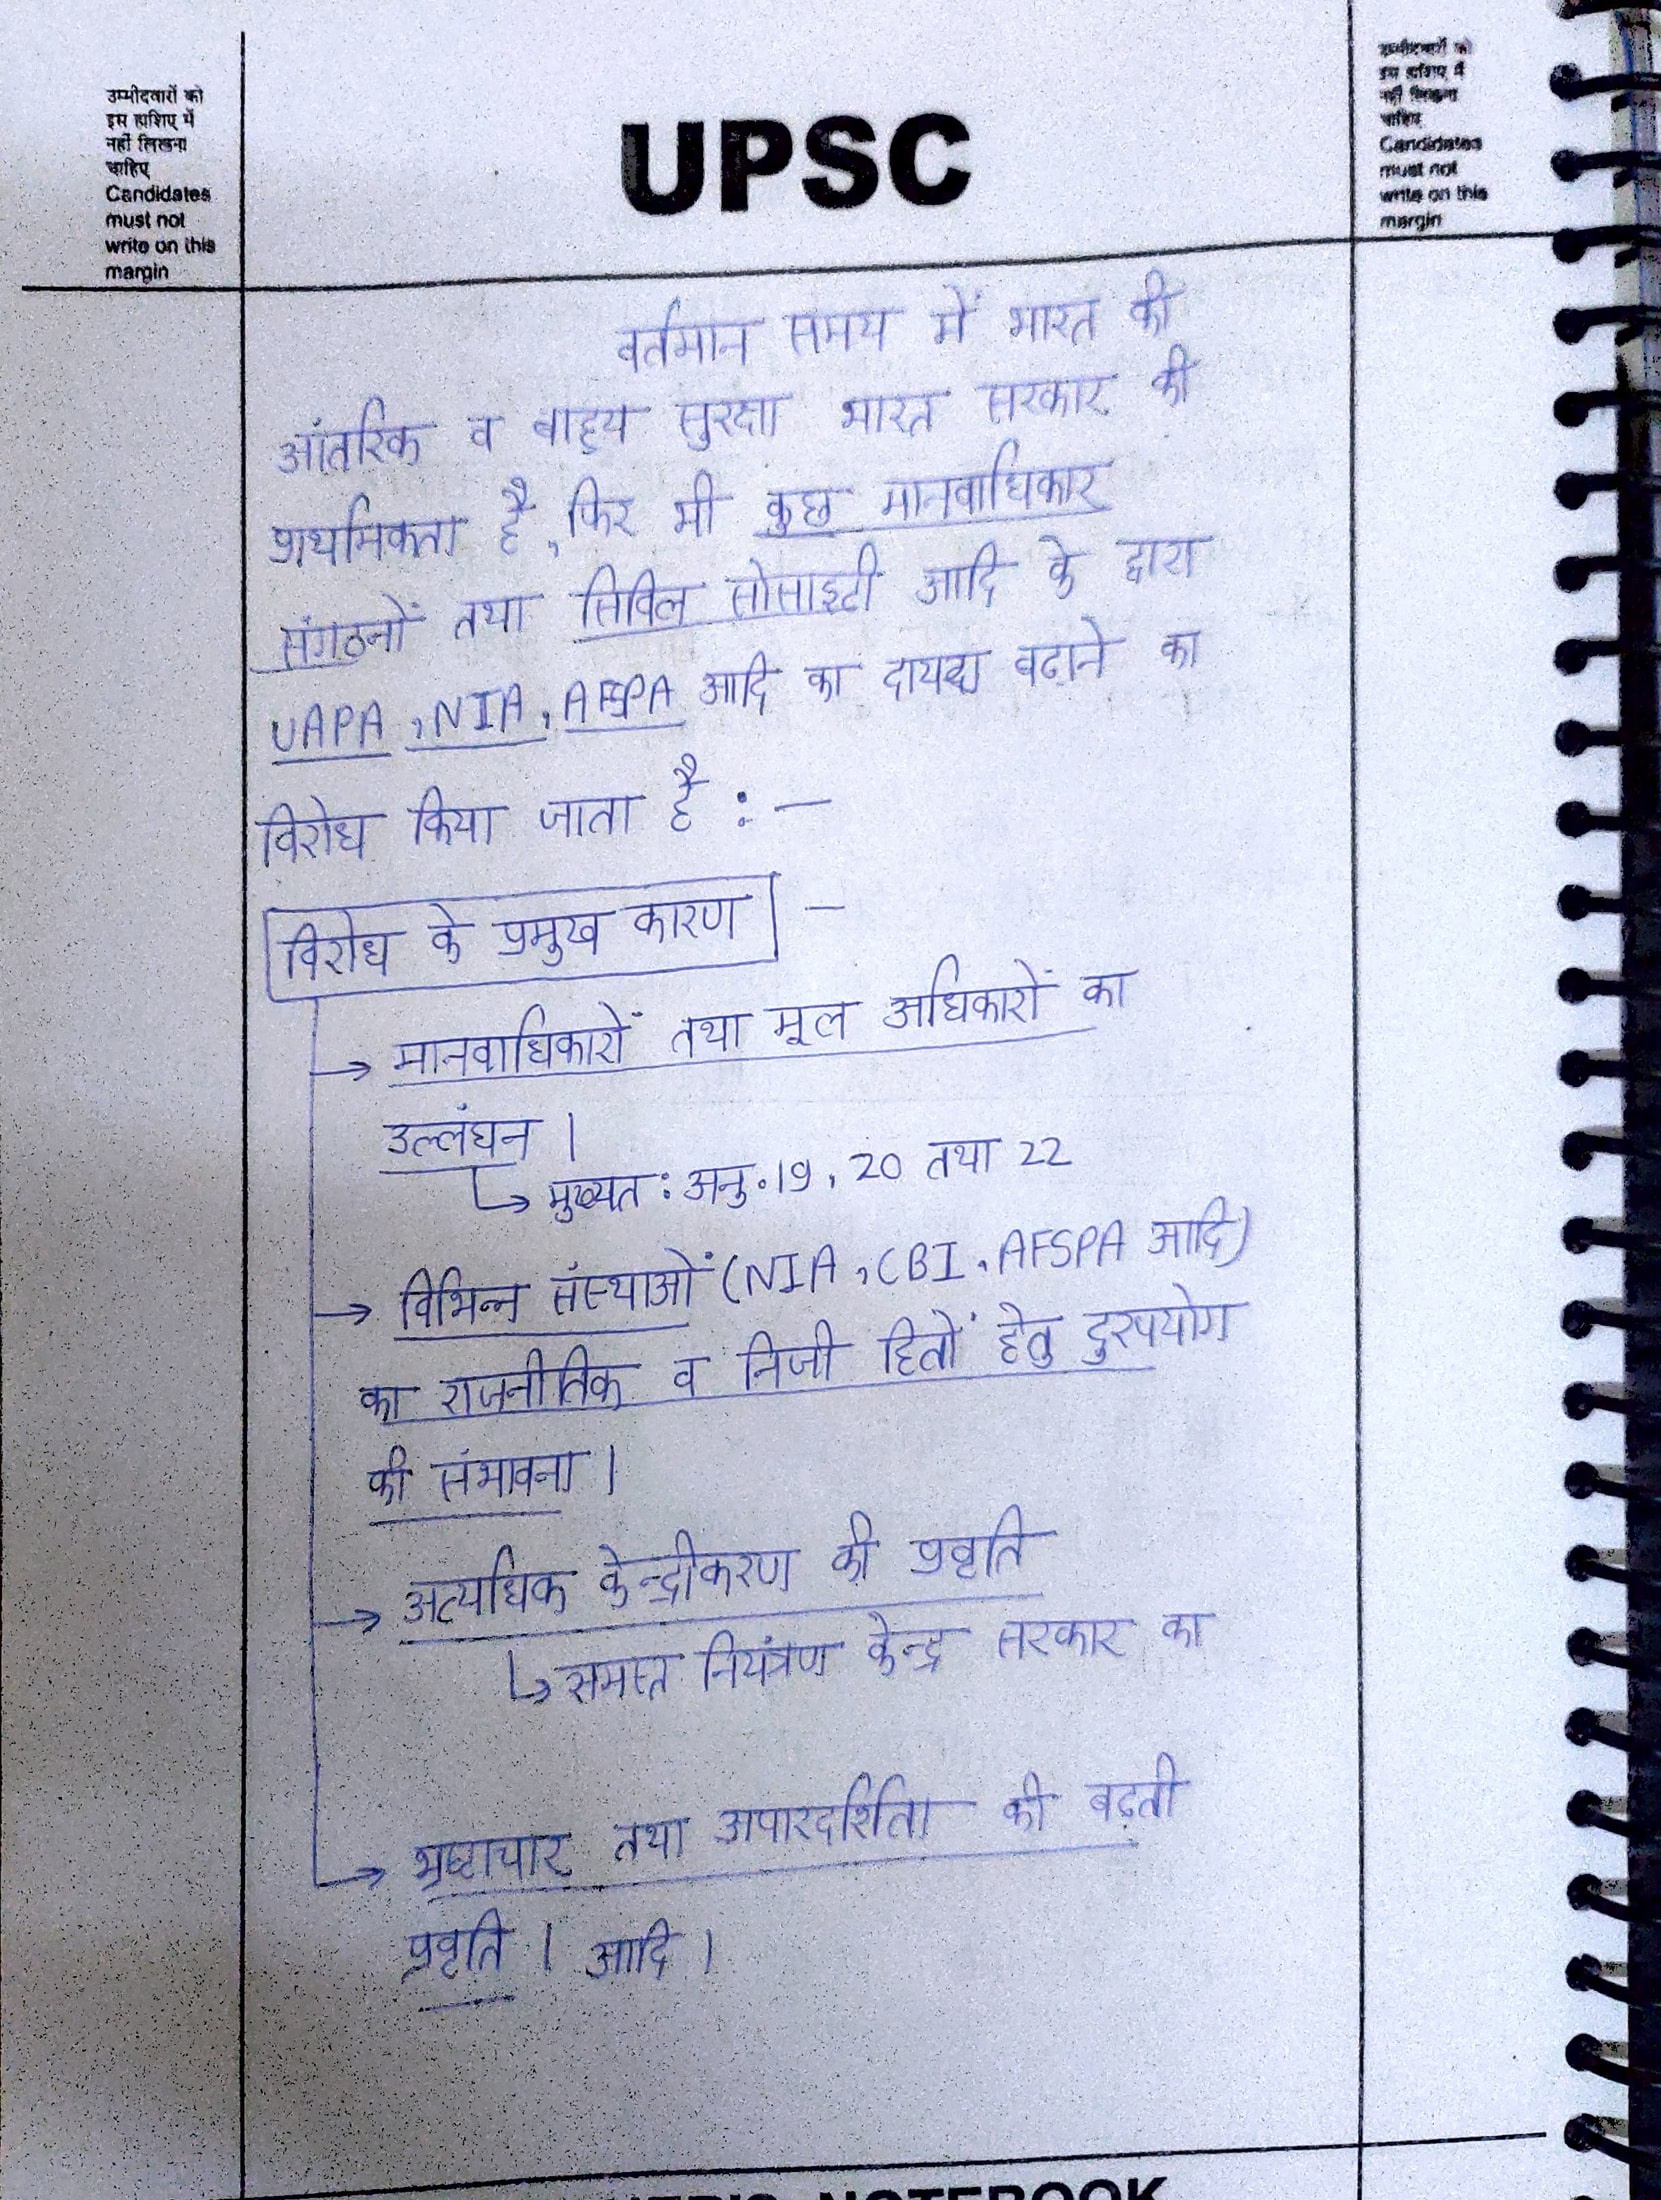 उम्मीदवारों को
इस हाशिए में
नहीं लिखना
चाहिए
Candidates
must not
write on this
margin
UPSC
उम्मीदवारों को
इस हाशिए में
नहीं लिखना
चाहिए
Candidates
must not
write on this
margin
वर्तमान समय में भारत की
आंतरिक व वाह्य सुरक्षा भारत सरकार की
प्राथमिकता है, फिर भी कुछ मानवाधिकार
संगठनों तथा सिविल सोसाइटी आदि के द्वारा
UAPA, NIA, AFSPA आदि का दायरा बढाने का
विरोध किया जाता है :—
विरोध के प्रमुख कारण —
→ मानवाधिकारों तथा मूल अधिकारों का
उल्लंघन ।
↳ मुख्यत: अनु. 19, 20 तथा 22
→ विभिन्न संस्थाओं (NIA, CBI, AFSPA आदि)
का राजनीतिक व निजी हितों हेतु दुरुपयोग
की संभावना ।
→ अत्यधिक केन्द्रीकरण की प्रवृति
↳ समस्त नियंत्रण केन्द्र सरकार का
→ भ्रष्टाचार तथा अपारदर्शिता की बढ़ती
प्रवृति । आदि ।
NOTEBOOK